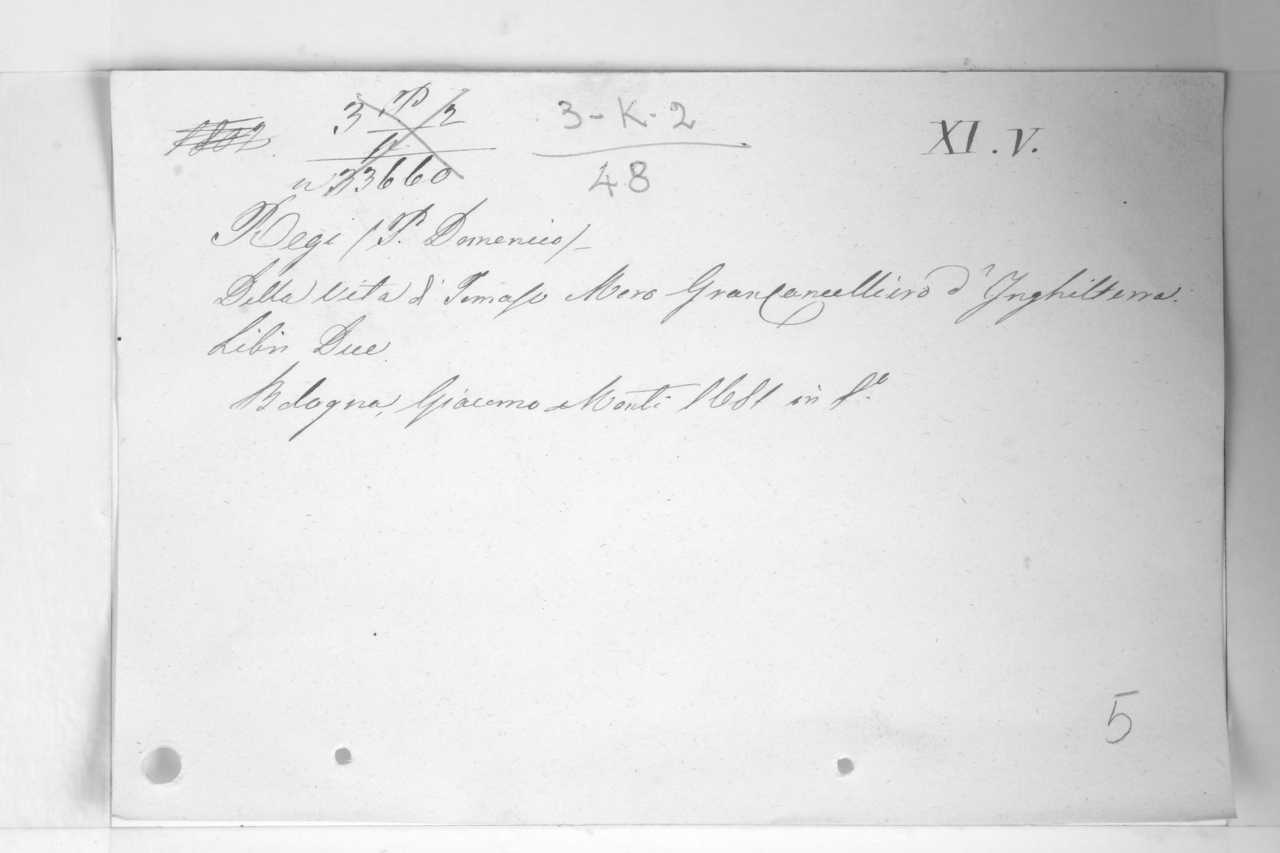 3 P 2
3-K-2
XI.V.
n 33660
48
Regi (P. Domenico)_
Della vita d' Tomaso Moro Grancancelliero d'Inghilterra.
Libri Due
Bologna, Giacomo Monti 1681 in 8.º
5